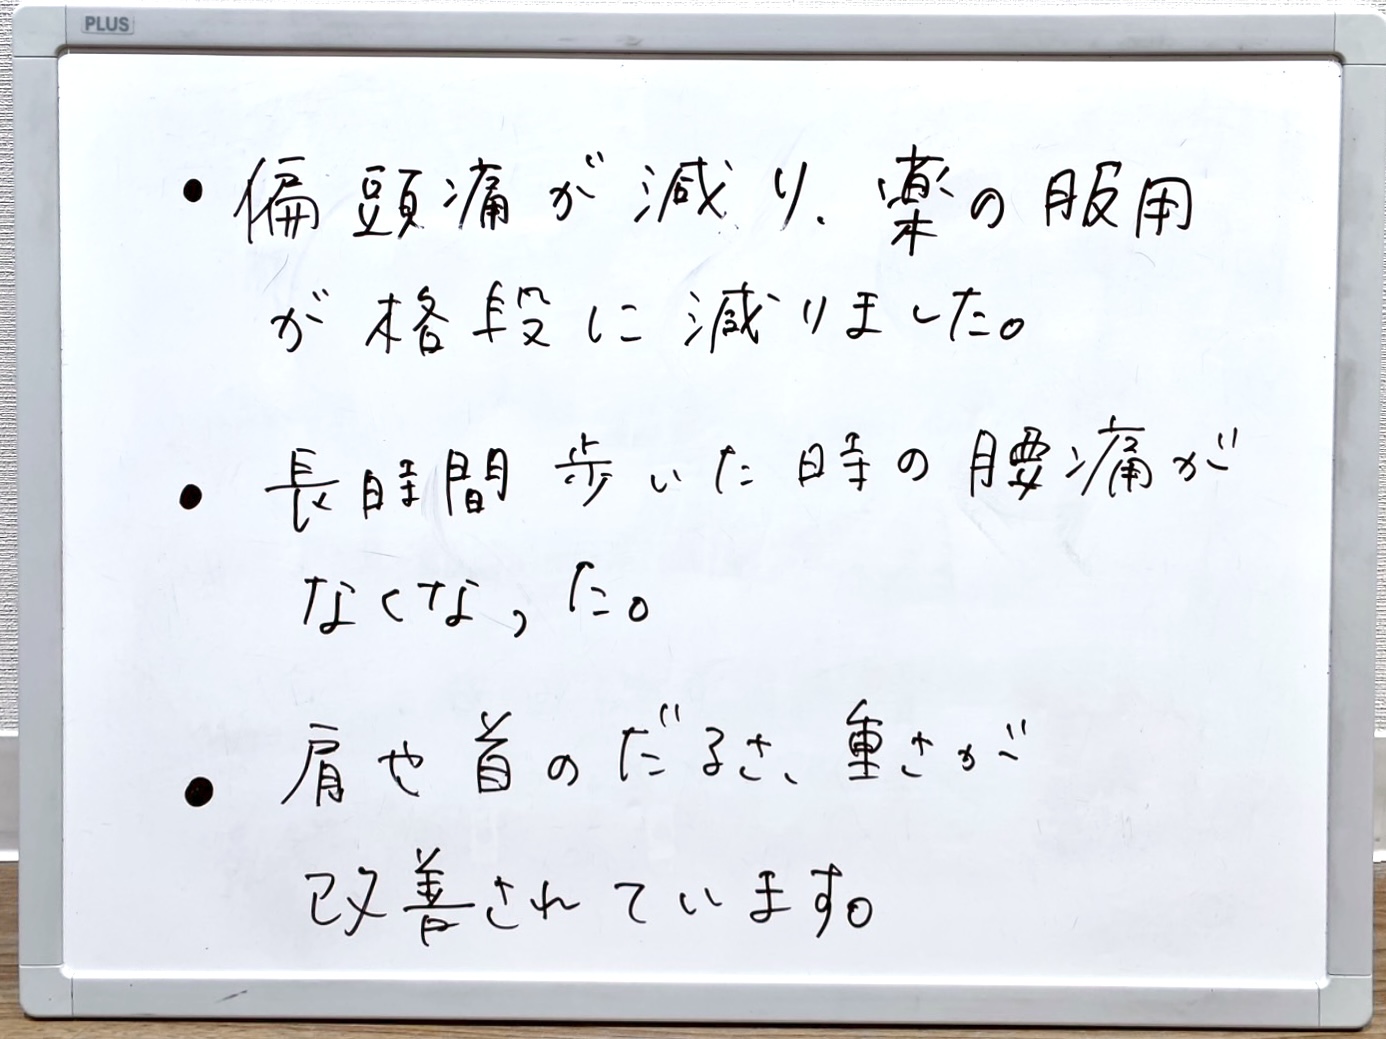 PLUS
• 偏頭痛が減り、薬の服用
が格段に減りました。
• 長時間歩いた時の腰痛が
なくなった。
• 肩や首のだるさ、重さが
改善されています。